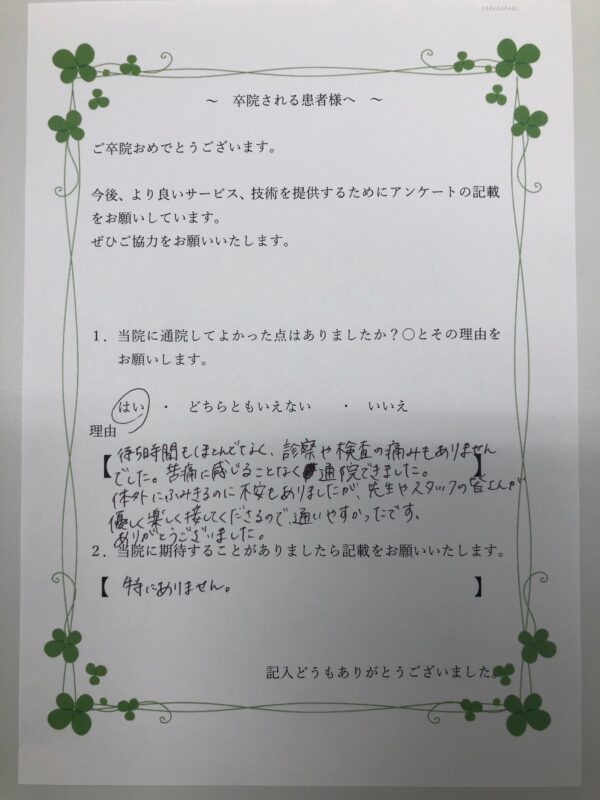 ～ 卒院される患者様へ ～
ご卒院おめでとうございます。
今後、より良いサービス、技術を提供するためにアンケートの記載
をお願いしています。
ぜひご協力をお願いいたします。
1．当院に通院してよかった点はありましたか？○とその理由を
お願いします。
はい ・ どちらともいえない ・ いいえ
理由
【 待ち時間もほとんどなく、診察や検査の痛みもありません
でした。苦痛に感じることなく通院できました。 】
体外にふみきるのに不安もありましたが、先生やスタッフの皆さんが
優しく楽しく接してくださるので、通いやすかったです。
ありがとうございました。
2．当院に期待することがありましたら記載をお願いいたします。
【 特にありません。 】
記入どうもありがとうございました。